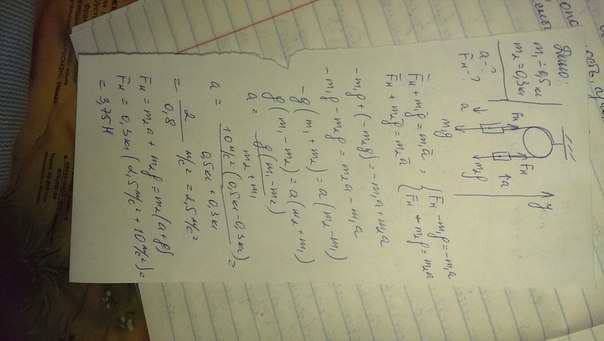 Дано:
m₁ = 0,5 кг
m₂ = 0,3 кг
a - ?
Fн - ?
Fн
Fн
a
a
m₁g
m₂g
y
Fн + m₁g = m₁a,
Fн + m₂g = m₂a
{ Fн - m₁g = -m₁a
Fн + m₂g = m₂a
-m₁g + (-m₂g) = -m₁a + m₂a
-m₁g - m₂g = m₂a - m₁a
-g(m₁ + m₂) = a(m₂ - m₁)
g(m₁ - m₂) = a(m₂ + m₁)
a = g(m₁ - m₂) / m₂ + m₁
a = 10 м/с² (0,5 кг - 0,3 кг) / 0,5 кг + 0,3 кг =
= 2 / 0,8 м/с² = 2,5 м/с²
Fн = m₂a + m₂g = m₂(a + g)
Fн = 0,3 кг (2,5 м/с² + 10 м/с²) =
= 3,75 Н